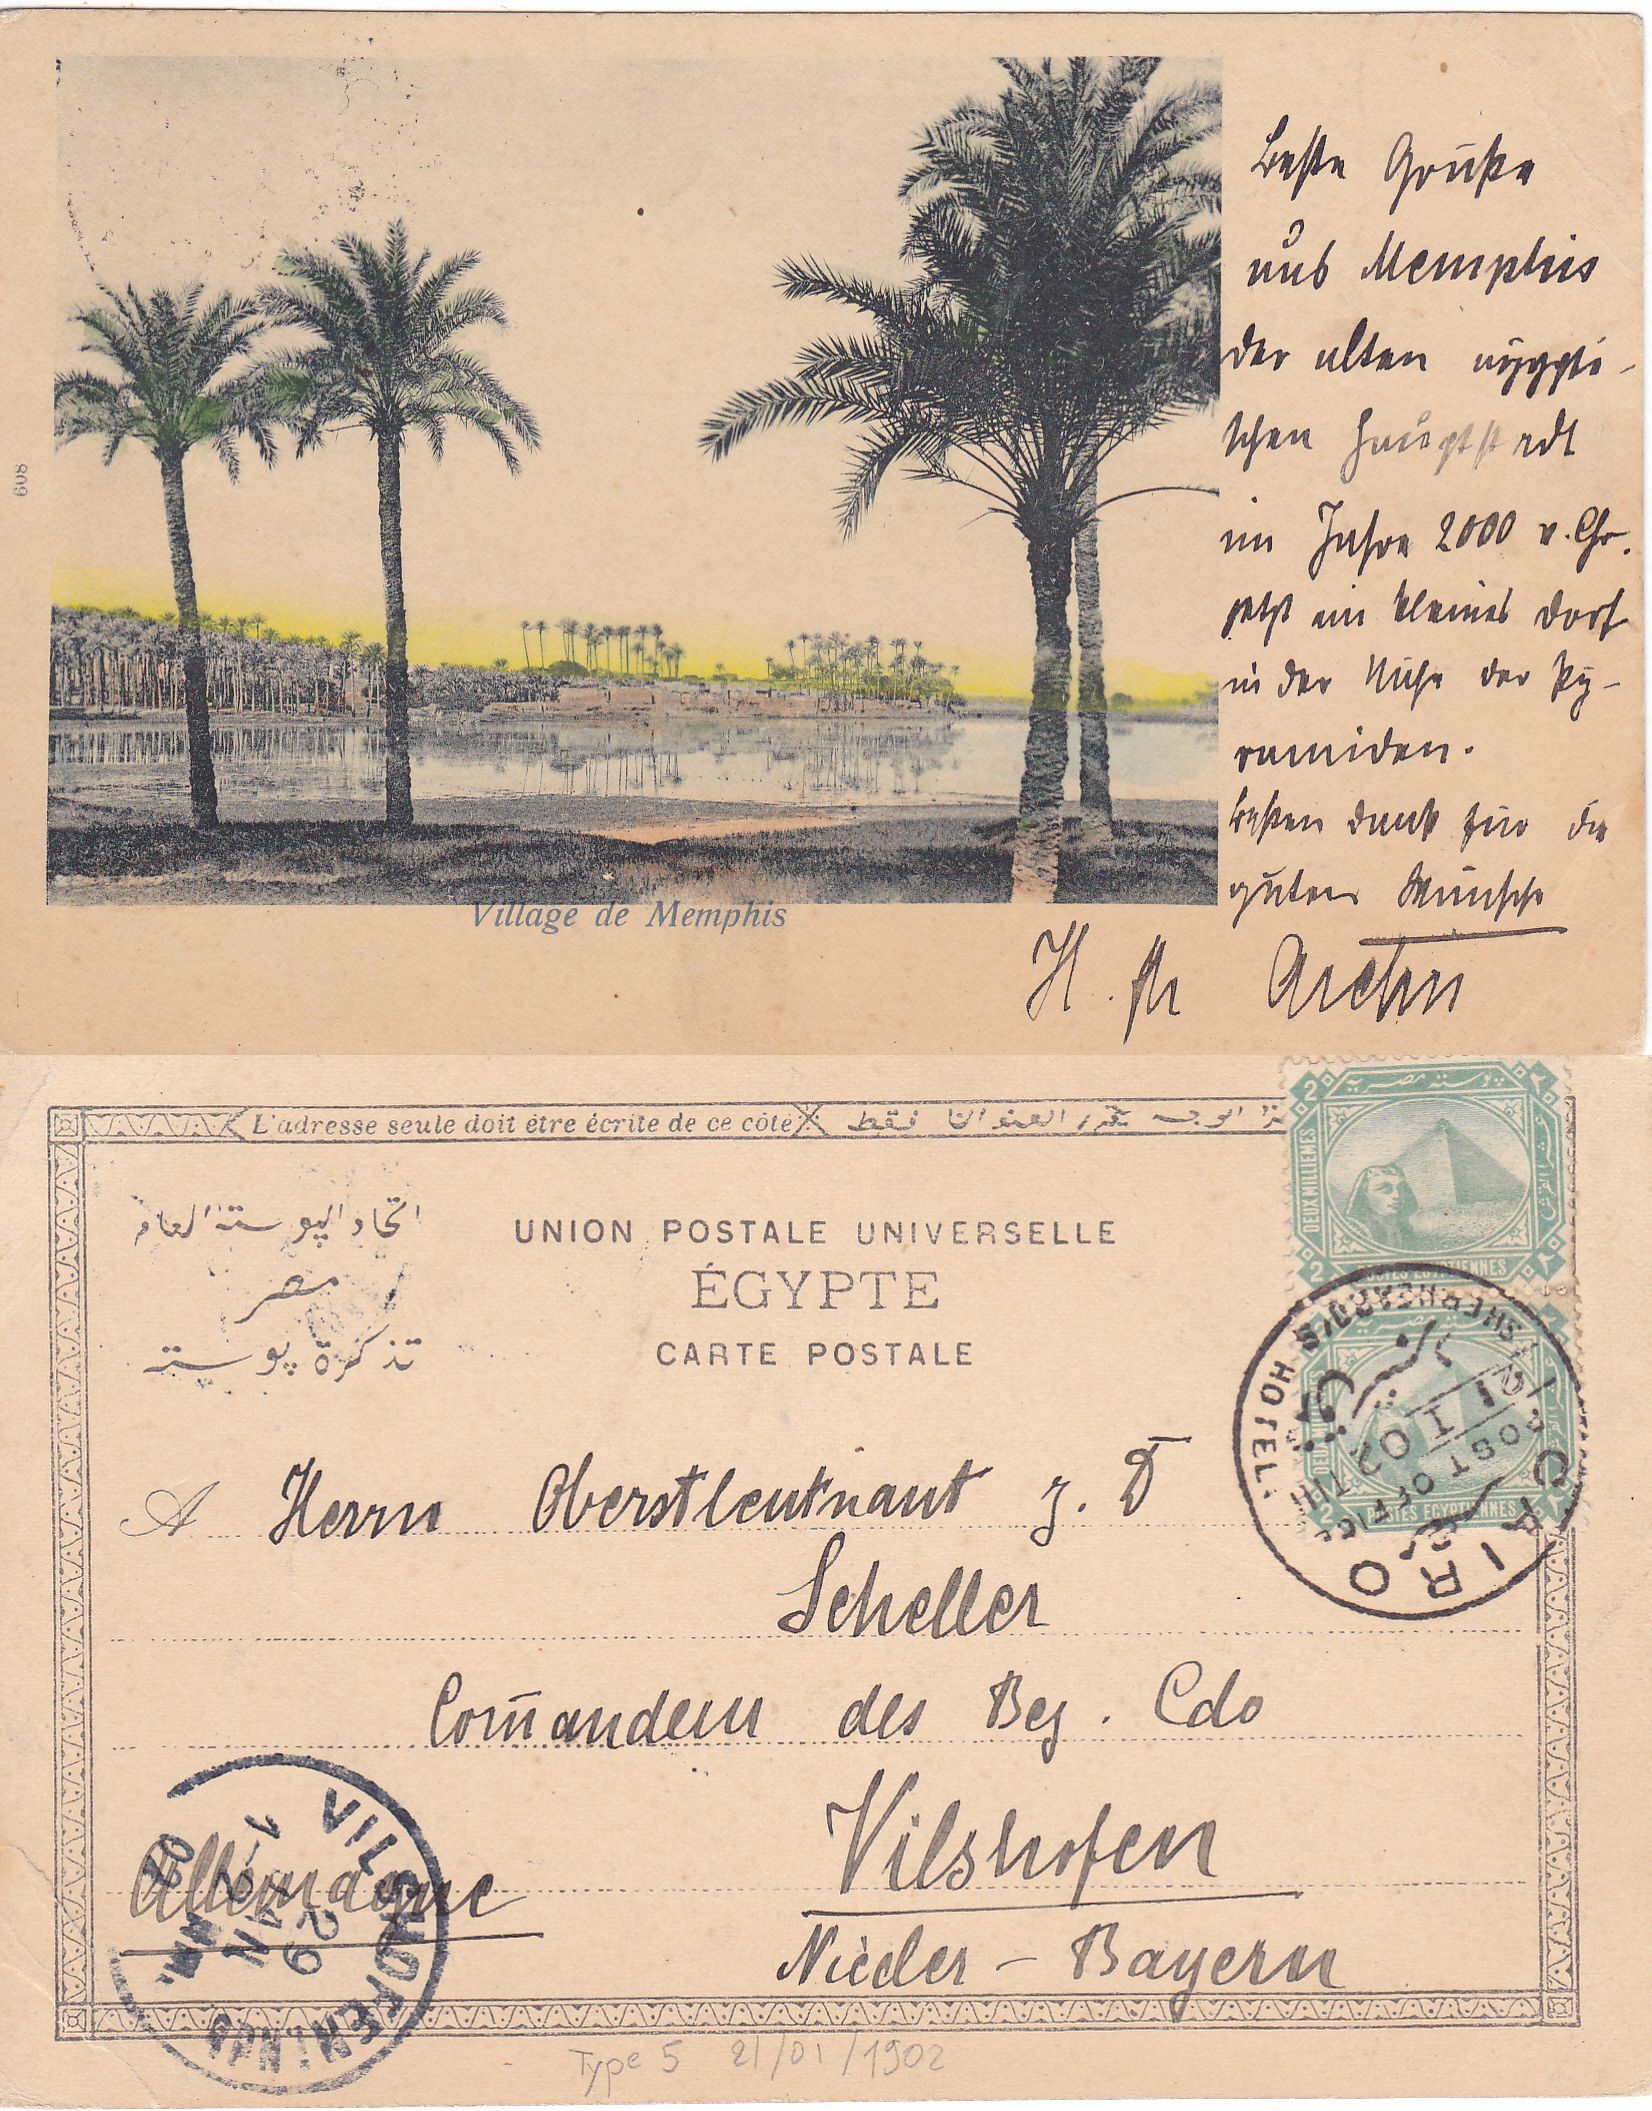 608
Beste Grüße
aus Memphis
der alten ägypti-
schen Hauptstadt
im Jahre 2000 v. Chr.
jetzt ein kleines Dorf
in der Nähe der Py-
ramiden.
Besten Dank für die
guten Wünsche
Village de Memphis
H.
L'adresse seule doit être écrite de ce côté
الوجه يحرر العنوان فقط
اتحاد البوسته العام
مصر
تذكرة بوسته
UNION POSTALE UNIVERSELLE
ÉGYPTE
CARTE POSTALE
2 بوستة مصرية ٢
DEUX MILLIEMES
2 POSTES EGYPTIENNES
2 POSTES EGYPTIENNES
SHEPHEARD'S HOTEL
21 I 02
POST OFFICE
CAIRO
A Herrn Oberstleutnant z. D
Scheller
Commandeur des Bez. Cdo
Vilshofen
Allemagne
Nieder-Bayern
VILSHOFEN I. NDB
29 JAN
02
NM.
Type 5 21/01/1902